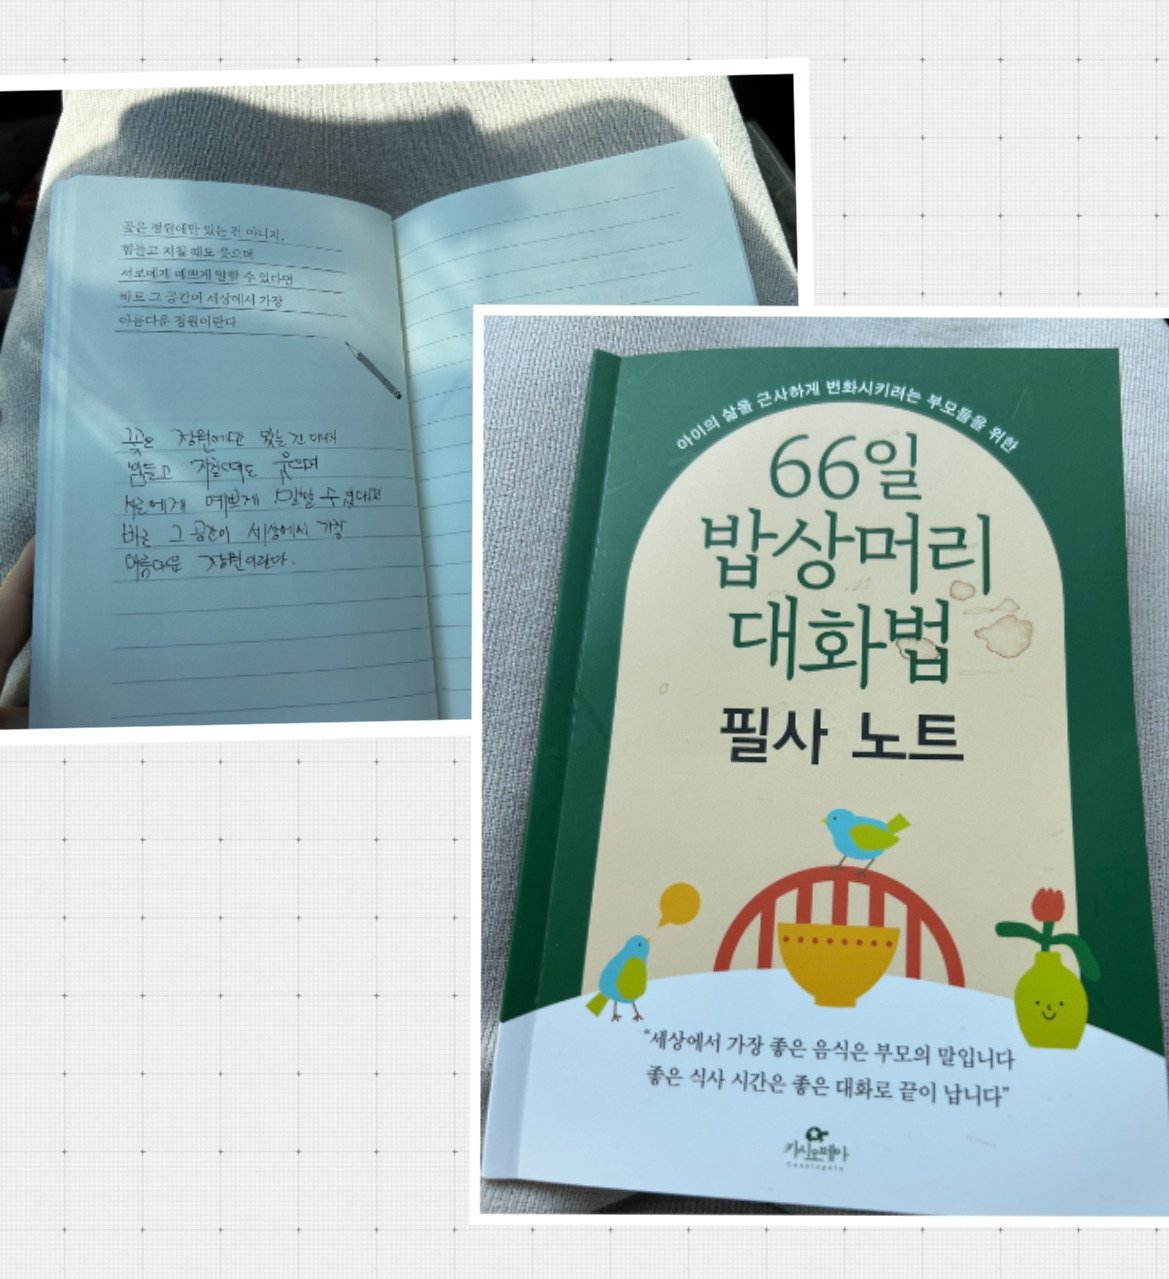 꽃은 정원에만 있는 건 아니지.
힘들고 지칠 때도 웃으며
서로에게 예쁘게 말할 수 있다면
바로 그 공간이 세상에서 가장
아름다운 정원이란다
꽃은 정원에만 있는 건 아니지
힘들고 지칠때도 웃으며
서로에게 예쁘게 말할 수 있다면
바로 그 공간이 세상에서 가장
아름다운 정원이란다.
아이의 삶을 근사하게 변화시키려는 부모들을 위한
66일
밥상머리
대화법
필사 노트
“세상에서 가장 좋은 음식은 부모의 말입니다
좋은 식사 시간은 좋은 대화로 끝이 납니다”
카시오페아
Cassiopeia